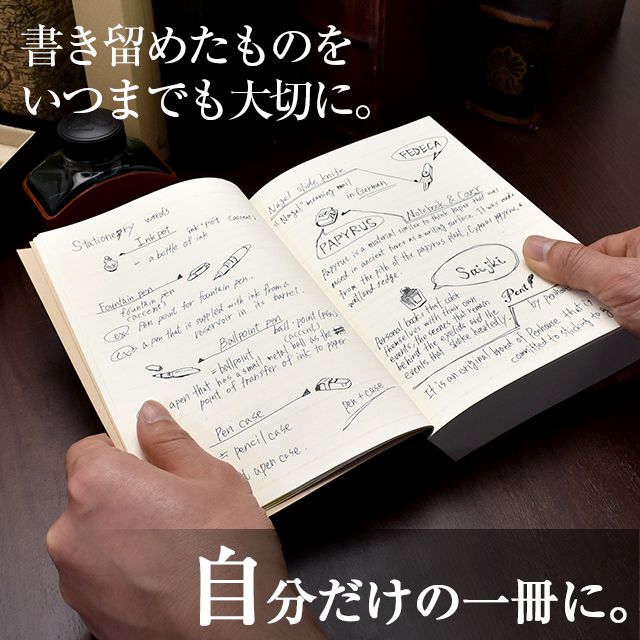 書き留めたものを
いつまでも大切に。
Stationery words
Inkpot ink・pot (accent)
in a bottle of ink
Fountain pen
fountain pen
(accent)
ex Pen point for fountain pen.
ex a pen that is supplied with ink from a
reservoir in its barrel.
Ballpoint pen ball・point (pen)
(accent)
= ballpoint
a pen that has a small metal ball as the
point of transfer of ink to paper
Pen case
= pencil case
a pen case.
pen + case
FEDECA
Nagel slide knife
"Nagel" meaning nail
in German
Notebook & Cover
PAPYRUS
Papyrus is a material similar to thick paper that was
used in ancient times as a writing surface. It was made
from the pith of the papyrus plant, Cyperus papyrus, a
wetland sedge.
Saijiki
Personal books that color
themselves with their own
events, the scenes that remain
behind the eyelids and the
events that shake hearts!
Pent
by
It is an original brand of Penhouse that is
committed to sticking to
自分だけの一冊に。